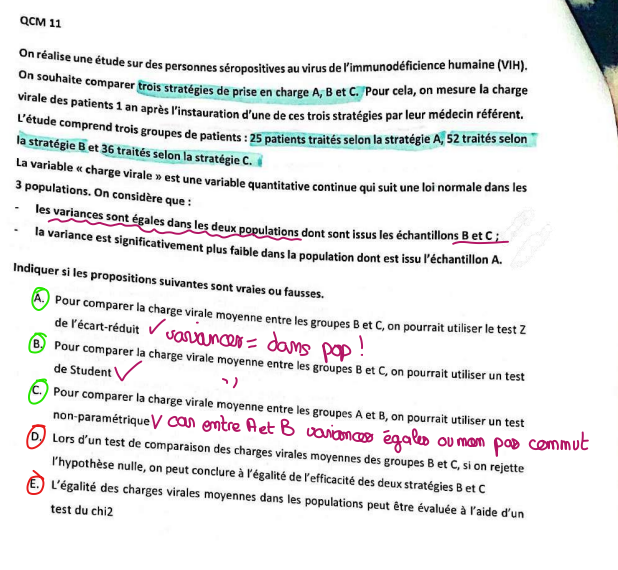 QCM 11
On réalise une étude sur des personnes séropositives au virus de l'immunodéficience humaine (VIH).
On souhaite comparer trois stratégies de prise en charge A, B et C. Pour cela, on mesure la charge
virale des patients 1 an après l'instauration d'une de ces trois stratégies par leur médecin référent.
L'étude comprend trois groupes de patients : 25 patients traités selon la stratégie A, 52 traités selon
la stratégie B et 36 traités selon la stratégie C.
La variable « charge virale » est une variable quantitative continue qui suit une loi normale dans les
3 populations. On considère que :
- les variances sont égales dans les deux populations dont sont issus les échantillons B et C ;
- la variance est significativement plus faible dans la population dont est issu l'échantillon A.
Indiquer si les propositions suivantes sont vraies ou fausses.
A. Pour comparer la charge virale moyenne entre les groupes B et C, on pourrait utiliser le test Z
de l'écart-réduit ✓ variances = dans pop !
B. Pour comparer la charge virale moyenne entre les groupes B et C, on pourrait utiliser un test
de Student ✓ ''
C. Pour comparer la charge virale moyenne entre les groupes A et B, on pourrait utiliser un test
non-paramétrique V can entre A et B variances égales ou non pas
D. Lors d'un test de comparaison des charges virales moyennes des groupes B et C, si on rejette
l'hypothèse nulle, on peut conclure à l'égalité de l'efficacité des deux stratégies B et C
E. L'égalité des charges virales moyennes dans les populations peut être évaluée à l'aide d'un
test du chi2